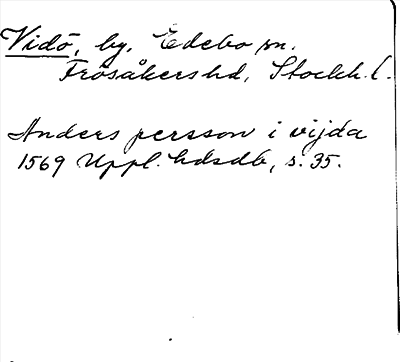 Vidö, by, Edebo sn.
Frösåkers hd, Stockh. l.
Anders persson i vijda
1569 Uppl. hdsdb, s. 35.